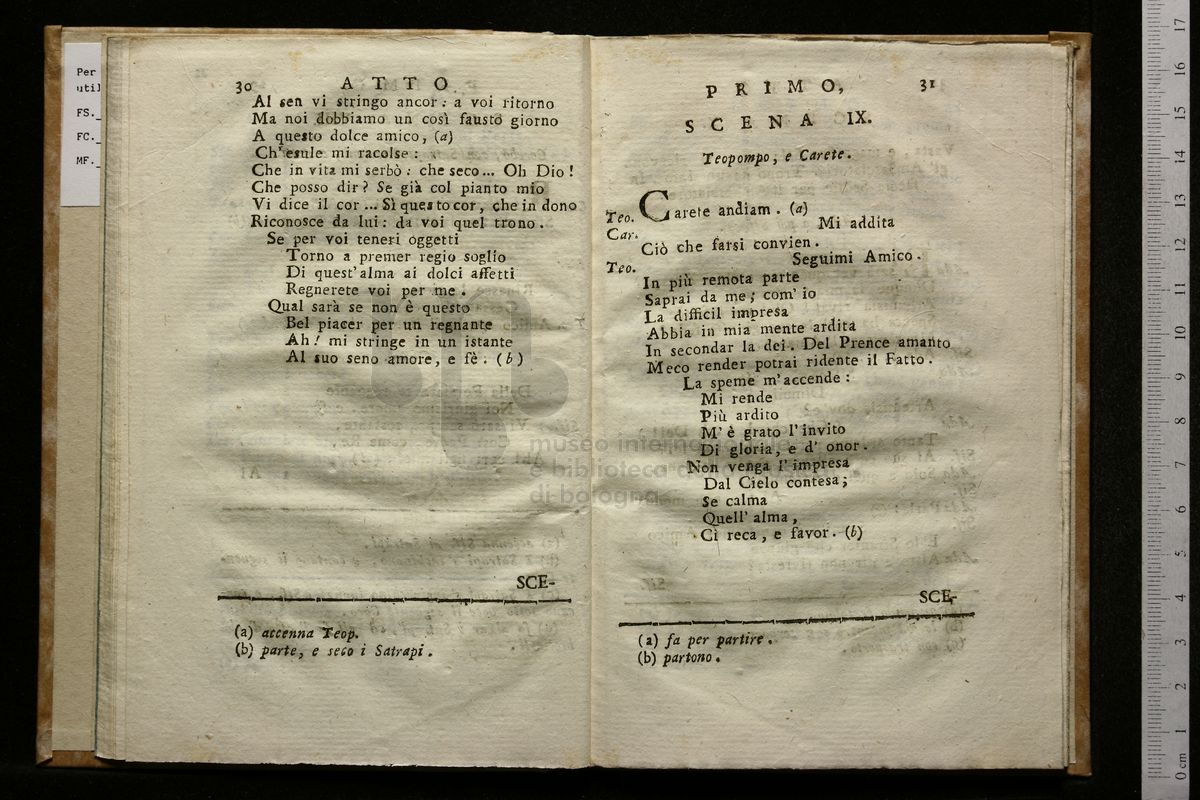 Per
util
FS._
FC._
MF._
30 ATTO
Al sen vi stringo ancor: a voi ritorno
Ma noi dobbiamo un così fausto giorno
A questo dolce amico, (a)
Ch'esule mi racolse:
Che in vita mi serbò: che seco... Oh Dio!
Che posso dir? Se già col pianto mio
Vi dice il cor... Sì questo cor, che in dono
Riconosce da lui: da voi quel trono.
Se per voi teneri oggetti
Torno a premer regio soglio
Di quest'alma ai dolci affetti
Regnerete voi per me.
Qual sarà se non è questo
Bel piacer per un regnante
Ah! mi stringe in un istante
Al suo seno amore, e fè. (b)
SCE-
(a) accenna Teop.
(b) parte, e seco i Satrapi.
PRIMO, 31
SCENA IX.
Teopompo, e Carete.
Teo. Carete andiam. (a)
Car. Mi addita
Ciò che farsi convien.
Teo. Seguimi Amico.
In più remota parte
Saprai da me; com'io
La difficil impresa
Abbia in mia mente ardita
In secondar la dei. Del Prence amanto
Meco render potrai ridente il Fatto.
La speme m'accende:
Mi rende
Più ardito
M'è grato l'invito
Di gloria, e d'onor.
Non venga l'impresa
Dal Cielo contesa;
Se calma
Quell'alma,
Ci reca, e favor. (b)
SCE-
(a) fa per partire.
(b) partono.
museo internazionale
e biblioteca della musica
di bologna
17
16
15
14
13
12
11
10
9
8
7
6
5
4
3
2
1
0 cm